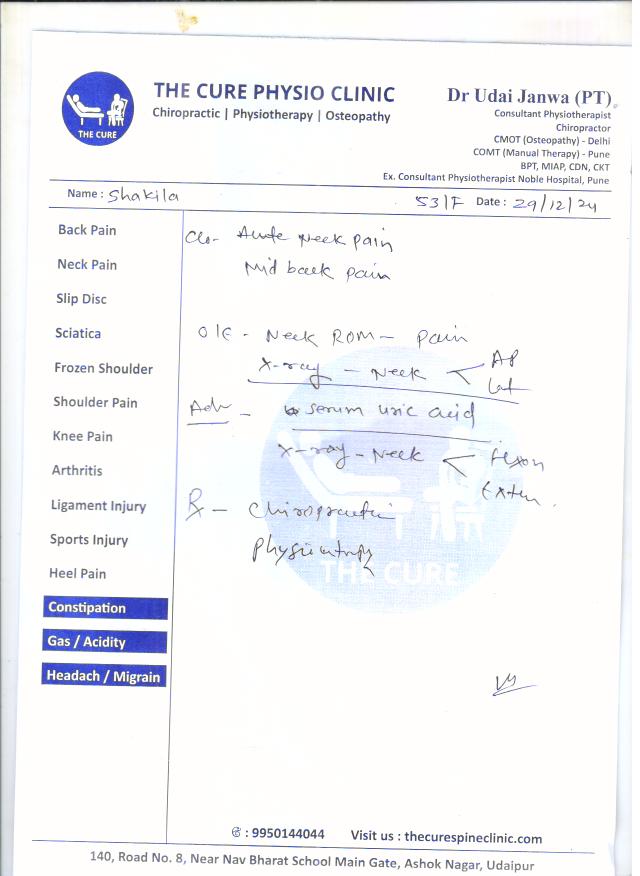 THE CURE PHYSIO CLINIC
Chiropractic | Physiotherapy | Osteopathy
THE CURE
Dr Udai Janwa (PT)
Consultant Physiotherapist
Chiropractor
CMOT (Osteopathy) - Delhi
COMT (Manual Therapy) - Pune
BPT, MIAP, CDN, CKT
Ex. Consultant Physiotherapist Noble Hospital, Pune
Name : Shakila 53/F Date : 29/12/24
Back Pain
Neck Pain
Slip Disc
Sciatica
Frozen Shoulder
Shoulder Pain
Knee Pain
Arthritis
Ligament Injury
Sports Injury
Heel Pain
Constipation
Gas / Acidity
Headach / Migrain
C/o - Acute Neck pain
Mid back pain
O/E - Neck ROM - Pain
X-ray - Neck < AP
Lat
Adv - serum uric acid
X-ray - Neck < Flexon
Exten
Rx - Chiropractic
THE CURE
: 9950144044 Visit us : thecurespineclinic.com
140, Road No. 8, Near Nav Bharat School Main Gate, Ashok Nagar, Udaipur